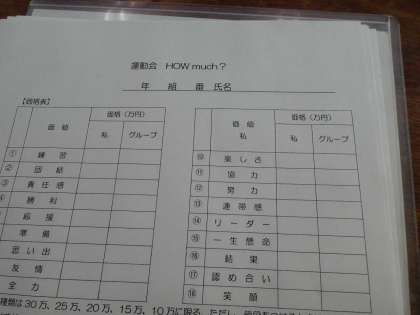 運動会 HOW much?
年 組 番 氏名
【価格表】
価値 価格(万円)
私 グループ
① 練習
② 団結
③ 責任感
④ 勝利
応援
準備
思い出
友情
全力
価値 価格(万円)
私 私 グループ
⑩ 楽しさ
⑪ 協力
⑫ 努力
⑬ 連帯感
⑭ リーダー
⑮ 一生懸命
⑯ 結果
⑰ 認め合い
⑱ 笑顔
種類は30万、25万、20万、15万、10万に限る。ただし、